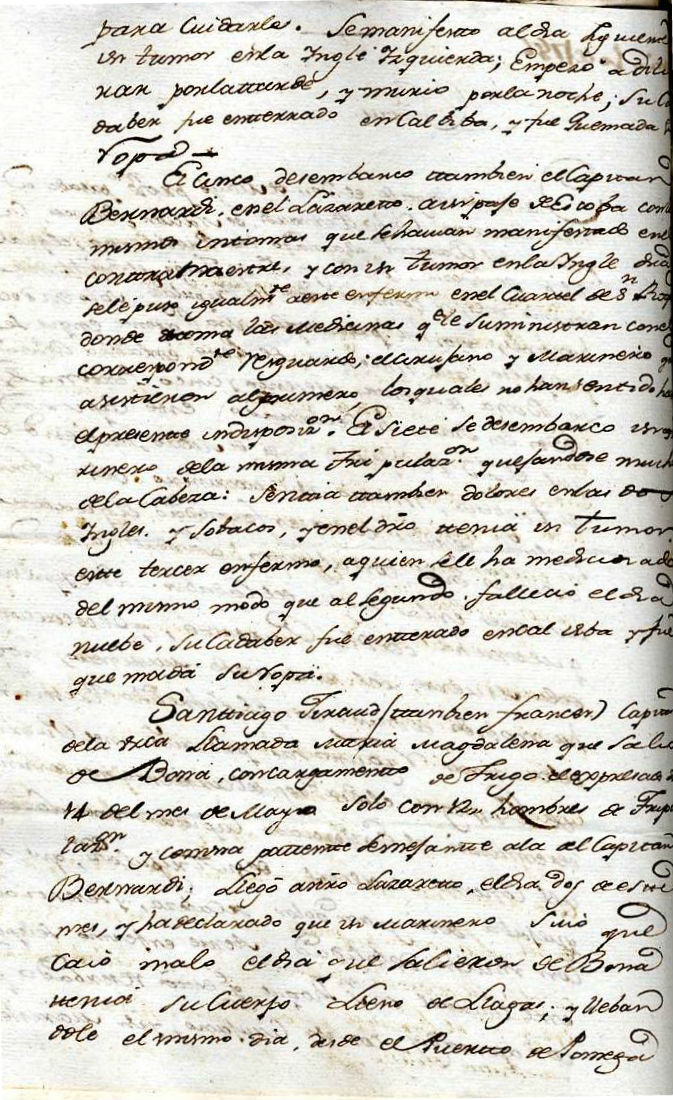 para Cuidarle. Se manifesto al dia siguiente
un tumor en la Ingle Izquierda; Empezo a deli
rar por la tarde, y murio por la noche; su Ca
daber fue enterrado en Cal biba, y fue quemada su
ropa
El cinco desembarco ttambien el Capitan
Bernardi, en el Lazareto con los
mismos sintomas que se havian manifestado en el
contramaestre, y con un tumor en la Ingle
se le puso igualmte. a este enfermo en el Cuartel de Sn. Roq
donde toma las Medicinas qe. se le suministran con el
correspondte. resguardo; el cirujano y Marinero q
asistieron al primero los quales no han sentido ha
el presente indisposion. El Siete se desembarco un ma
rinero de la misma Tripulazon. quejandose mucho
de la Cabeza: sentia ttambien dolores en las do
Ingles. y sobacos, y en el dro ttenia un tumor
este tercer enfermo, a quien se le ha medicinado
del mismo modo que al segundo. fallecio el dia
nuebe, su Cadaber fue enterrado en cal biba y fue
quemada su ropa.
Santtiago Giraud (ttambien frances) Capitan
de la urca Llamada Maria Magdalena que salio
de Bona, con cargamento de Trigo el expresado
14 del mes de Mayo solo con 12 hombres de Tripu
lazon. y con una pattente semejante a la del Capitan
Bernardi; Llegó a nro Lazareto, el dia dos de este
mes, y ha declarado que un Marinero suio que
caio malo el dia que salieron de Bona
ttenia su Cuerpo Lleno de Llagas; y lleban
dole el mismo dia, desde el Puerto de Pomega